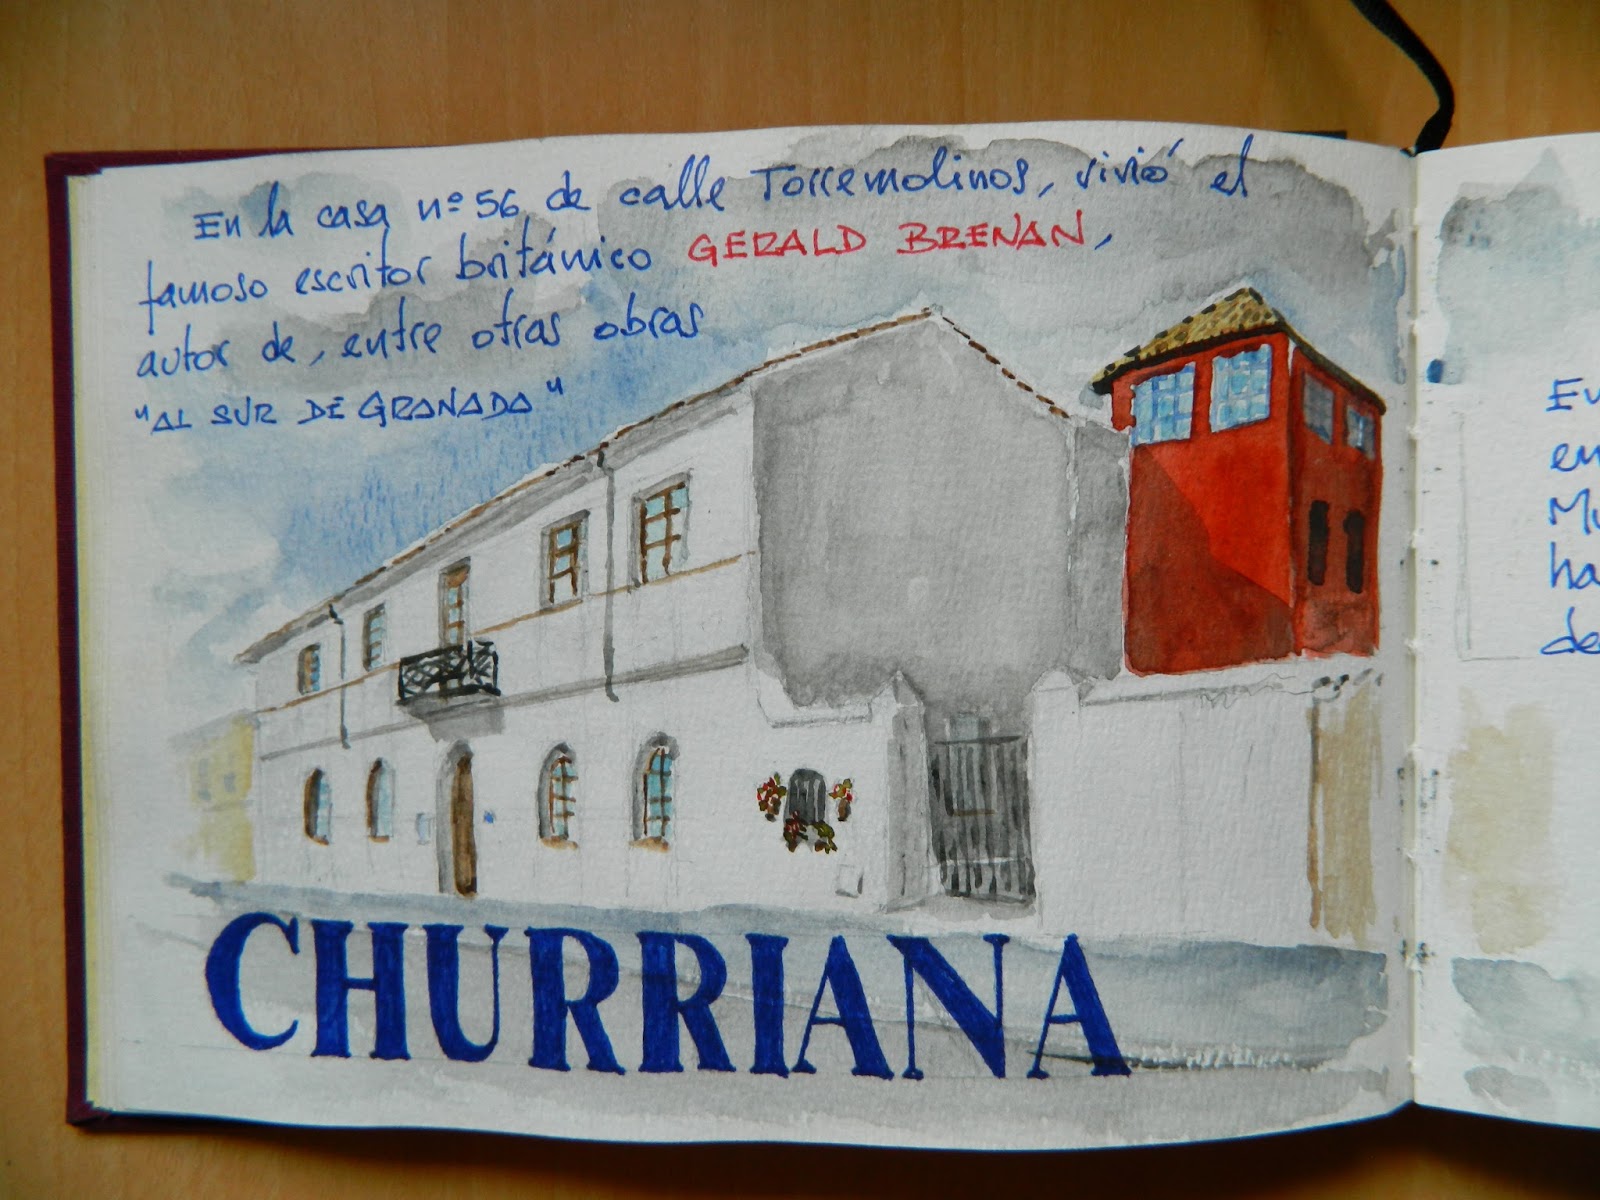 En la casa nº 56 de calle Torremolinos, vivió el
famoso escritor británico GERALD BRENAN,
autor de, entre otras obras
"AL SUR DE GRANADA"
CHURRIANA
en
ha
de